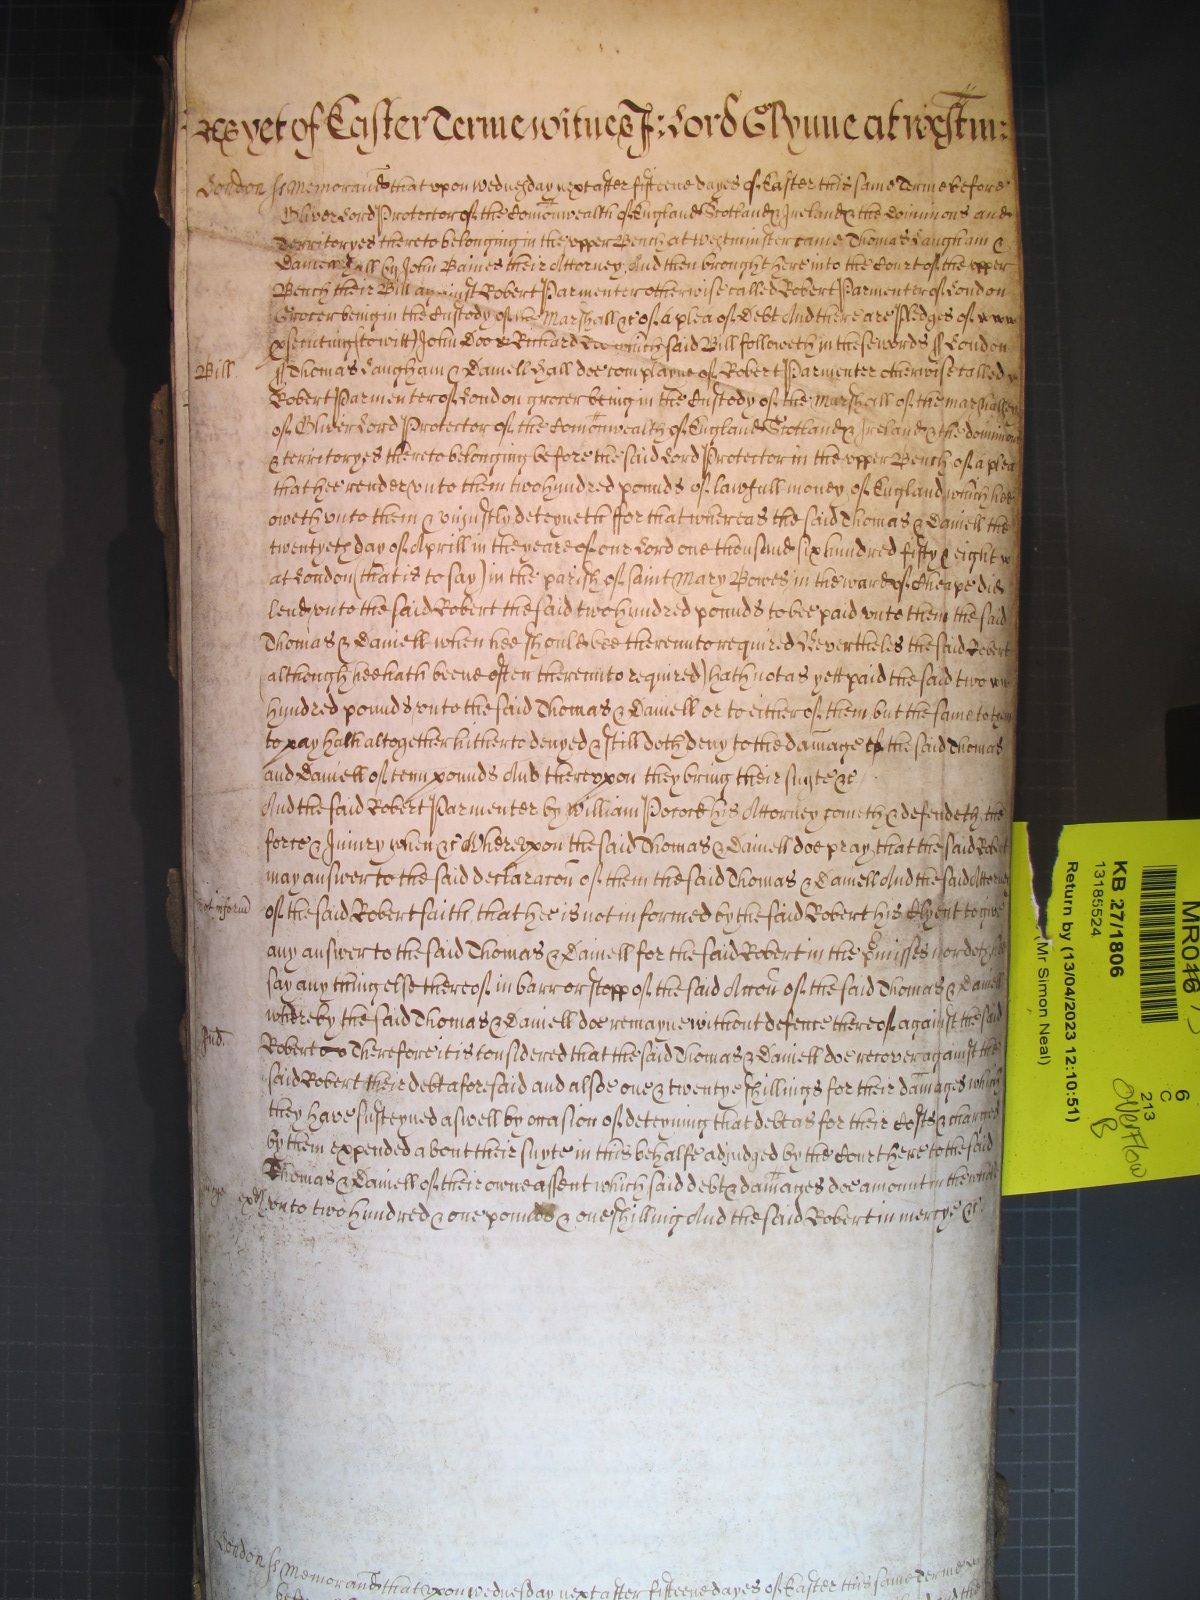 As yet of Easter Terme witnes J: Lord Glynne at westm:
London ss Memorand that upon wednesday next after fifteene dayes of Easter this same Terme before
Oliver Lord Protector of the Comonwealth of England Scotland & Ireland & the Dominions and
Territoryes thereto belonging in the upper Bench at Westminster came Thomas Langham &
Daniell Hall by John Baines their Attorney And then brought here into the Court of the upper
Bench their Bill against Robert Parmenter otherwise called Robert Parmenter of London
Grocer being in the Custody of the Marshall &c of a plea of Debt And there are Pledges of
prosecuting (to witt) John Doo & Richard Roo which said Bill followeth in these words ss London
Bill
ss Thomas Langham & Daniell Hall doe complayne of Robert Parmenter otherwise called
Robert Parmenter of London grocer being in the Custody of the Marshall of the marshalsey
of Oliver Lord Protector of the Comonwealth of England Scotland & Ireland & the dominions
& territoryes thereto belonging before the said Lord Protector in the upper Bench of a plea
that hee render unto them two hundred pounds of lawfull money of England which hee
oweth unto them & uniustly deteyneth ffor that whereas the said Thomas & Daniell the
twentyeth day of Aprill in the yeare of our Lord one thousand six hundred fifty & eight
at London (that is to say) in the parish of saint Mary Bowes in the ward of Cheape did
lend unto the said Robert the said two hundred pounds to bee paid unto them the said
Thomas & Daniell when hee should bee thereunto required Nevertheles the said Robert
(although hee hath beene often thereunto required) hath not as yett paid the said two
hundred pounds unto the said Thomas & Daniell or to either of them but the same to them
to pay hath altogether hitherto denyed & still doth deny to the damage of the said Thomas
and Daniell of tenn pounds And thereupon they bring their suyte &c
And the said Robert Parmenter by William Pocock his Attorney cometh & defendeth the
force & Iniury when &c Whereupon the said Thomas & Daniell doe pray that the said Robert
may answer to the said declaracon of them the said Thomas & Daniell And the said Attorney
not informd
of the said Robert saith that hee is not informed by the said Robert his Clyent to give
any answer to the said Thomas & Daniell for the said Robert in the Pmisses nor doth hee
say any thing else thereof in barr or stopp of the said Accon of the said Thomas & Daniell
whereby the said Thomas & Daniell doe remayne without defence thereof against the said
Jud.
Robert Therefore it is considered that the said Thomas & Daniell doe recover against the
said Robert their debt aforesaid and alsoe one & twentye shillings for their damages which
they have susteyned aswell by occasion of deteyning that debt as for their Costs & charges
by them expended about their suyte in this behalfe adjudged by the Court here to the said
Thomas & Daniell of their owne assent which said debt & damages doe amount in the whole
unto two hundred & one pounds & one shilling And the said Robert in mercye &c
London ss Memorand that upon wednesday next after fifteene dayes of Easter this same Terme
before
and the
MR018
KB 27/1806
13185524
Return by (13/04/2023 12:10:51)
(Mr Simon Neal)
6
C
213
Overflow
B